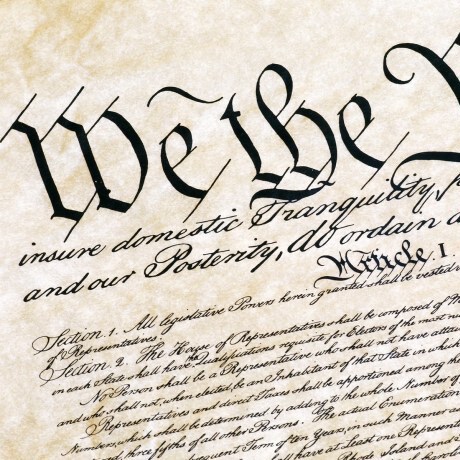 We the P
insure domestic Tranquility,
and our Posterity, do ordain a
Article. I.
Section. 1. All legislative Powers herein granted shall be vested
of Representatives.
Section. 2. The House of Representatives shall be composed of M
in each State shall have the Qualifications requisite for Electors of the most nu
No Person shall be a Representative who shall not have attai
and who shall not, when elected, be an Inhabitant of that State in which
Representatives and direct Taxes shall be apportioned among the
Numbers, which shall be determined by adding to the whole Number of
and three fifths of all other Persons. The actual Enumeration
subsequent Term of ten Years, in such Manner as
shall have at Least one Represent
Rhode Island and